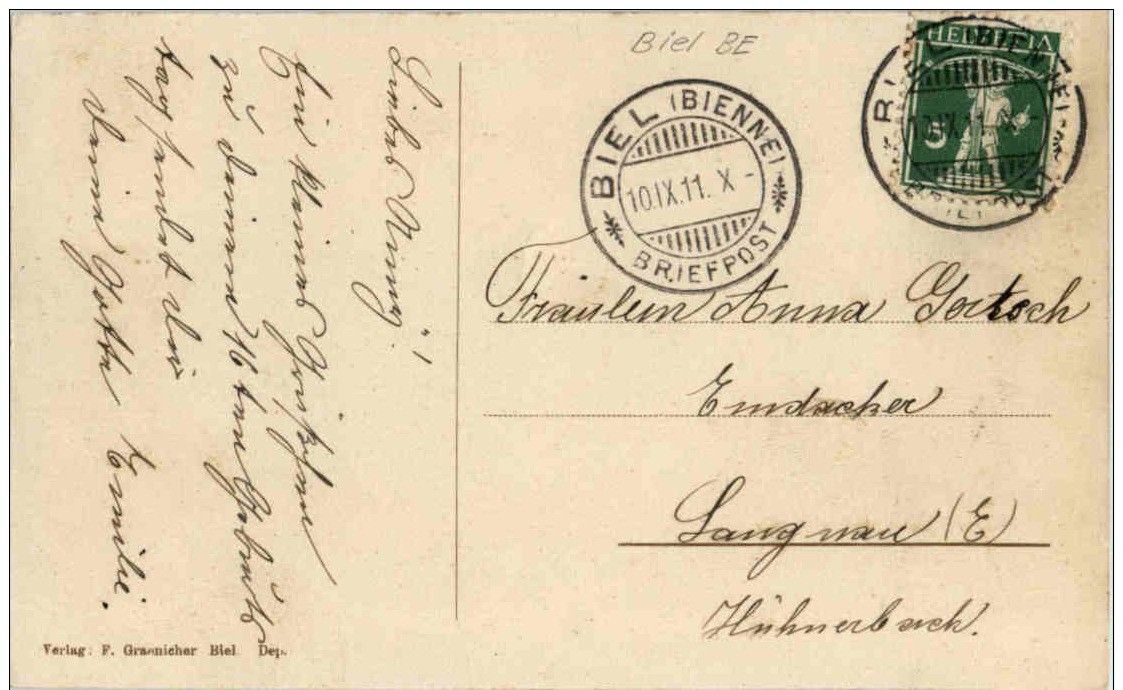 Biel BE
HELVETIA
5
BIEL (BIENNE)
10.IX.11. X -
BRIEFPOST
Liebes Anny!
Ein kleines Grüßchen
zu deinem 16ten Geburts
tag sendet dir
deine Gotte Emilie.
Fräulein Anna
Emdacker
Langnau (E)
Hühnerbach.
Verlag: F. Graenicher Biel. Dep.